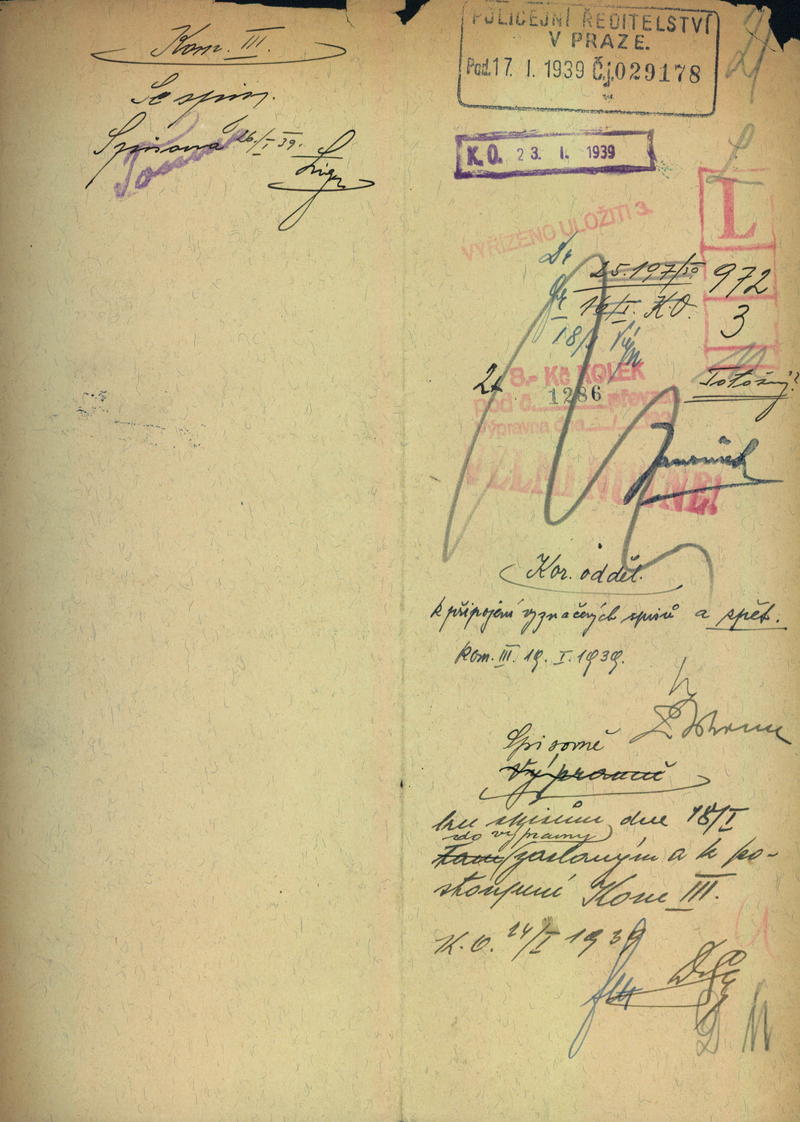 Kom. III.
Se spisy.
Spisovna 26/I 39.
POLICEJNÍ ŘEDITELSTVÍ
V PRAZE.
Pod. 17. I. 1939 Čj. 029178
K. O. 23. I. 1939
VYŘÍZENO ULOŽITI 3.
L
25.197/39
972
16/I. KO.
3
18/I
2x
8.- Kč KOLEK
1286
pod č. převzat
Výpravna dne
Totožný?
VELMI NUTNÉ!
Kor. odděl.
k připojení vyznačených spisů a zpět.
Kom. III. 19. I. 1939.
Spisovně
Výpravně
ku spisům dne 18/I
do výpravny
tam zaslaným a k po-
stoupení Kom III.
K. O. 24/I 1939